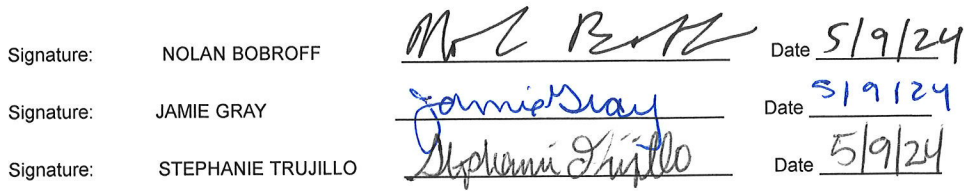 Signature: NOLAN BOBROFF Nol Broff Date 5/9/24
Signature: JAMIE GRAY Jamie Gray Date 5/9/24
Signature: STEPHANIE TRUJILLO Stephanie Trujillo Date 5/9/24